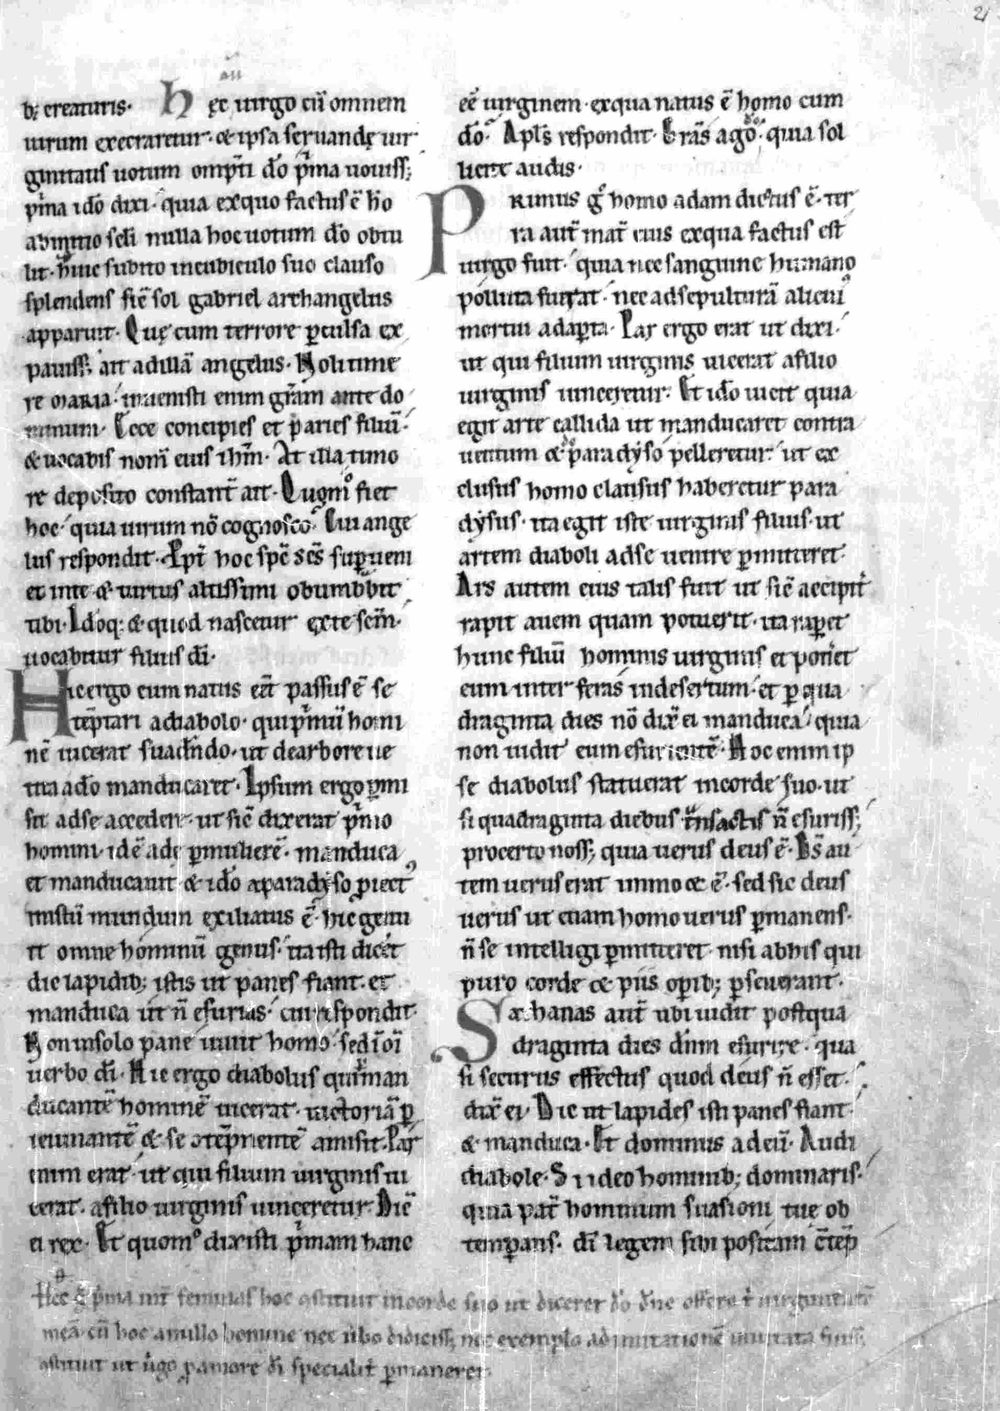 21
aū
b; creaturis. hęc uirgo cū omnem
uirum execraretur. & ipsa seruandę uir
ginitatis uotum omp̄ti dō p̄ma nouiss;
p̄ma idō dixi. quia ex quo factus ē hō
ab initio sc̄li nulla hoc uotum dō obtu
lit. huic subito in cubiculo suo clauso
splendens sic̄ sol gabriel archangelus
apparuit. Quę cum terrore ꝑculsa ex
pauiss; ait ad illā angelus. Noli time
re MARIA. inuenisti enim gr̄am ante do
minum. Ecce concipies et paries filiū.
& uocabis nom̄ eius ihm̄. At illa timo
re deposito constant̄ ait. Quom̊ fiet
hoc. quia uirum nō cognosco. Cui ange
lus respondit. Ept̄ hoc sp̄c sc̄s suꝑueni
et in te & uirtus altissimi obumbbit
tibi. Idoq; & quod nascetur ex te scm̄.
uocabitur filius dī.
Hic ergo cum natus eēt passus ē se
tēptari a diabolo. qui pⁱmū homi
nē uicerat suadendo. ut de arbore ue
tita a dō manducaret. Ipsum ergo ꝑmi
sit ad se accedere. ut sic̄ dixerat pⁱmo
homini. idē ade ꝑ mulierē. manduca
et manducauit & idō a paradyso ꝓiect'
in istū mundum exiliatus ē. hic genu
it omne hominū genus. ita isti dicēt
dic lapidib; istis ut panes fiant. et
manduca ut n̄ esurias. cui respondit.
Non in solo pane uiuit homo. sed ī oī
uerbo dī. Hic ergo diabolus qui man
ducantē hominē uicerat. uictoriā ꝑ
ieiunantē & se ꝯtēpnentē amisit. Par
enim erat. ut qui filium uirginis ui
cerat. a filio uirginis uinceretur. Dic̄
ei rex. Et quom̊ dixisti pⁱmam hanc
eē uirginem. ex qua natus ē homo cum
dō. Apl̄s respondit. Gr̄as ago dō. quia sol
licite audis.
PRIMUS gͦ homo adam dictus ē. ter
ra aut̄ mat̄ eius ex qua factus est
uirgo fuit. quia nec sanguine humano
polluta fuerat. nec ad sepulturā alicui'
mortui adaꝑta. Par ergo erat ut dixi.
ut qui filium uirginis uicerat a filio
uirginis uinceretur. Et idō uicit quia
egit arte callida ut manducaret contra
uetitum & de paradyso pelleretur. ut ex
clusus homo clausus haberetur para
dysus. ita egit iste uirginis filius. ut
artem diaboli ad se uenire ꝑmitteret.
Ars autem eius talis fuit ut sic̄ accipit̄
rapit auem quam potuerit. ita raꝑet
hunc filiū hominis uirginis et poneret
eum inter feras in desertum. et ꝑ qua
draginta dies nō dix̄ ei manduca. quia
non uidit eum esurientē. Hoc enim ip
se diabolus statuerat in corde suo. ut
si quadraginta diebus trⁿsactis n̄ esuriss;
pro certo noss; quia uerus deus ē. Ds̄ au
tem uerus erat immo & ē. sed sic deus
uerus ut etiam homo uerus ꝑmanens.
n̄ se intelligi ꝑmitteret. nisi ab his qui
puro corde & piis oꝑib; ꝑseuerant.
Sathanas aut̄ ubi uidit post qua
draginta dies dn̄m esurire. qua
si securus effectus quod deus n̄ esset.
dix̄ ei. Dic ut lapides isti panes fiant.
& manduca. Et dominus ad eū. Audi
diabole. Si ideo hominib; dominaris.
quia pat̄ hominum suasioni tuę ob
temꝑans. dī legem sibi positam c̄tēp
Hęc gͦ pⁱma int̄ feminas hoc ꝯstituit in corde suo ut diceret dō dn̄e offero t̄ uirginitatē
meā. cū hoc a nullo homine nec ūbo didiciss; nec exemplo ad imitationē inuitata fuiss;
ꝯstituit ut ūgo ꝓ amore dī specialit̄ ꝑmaneret.